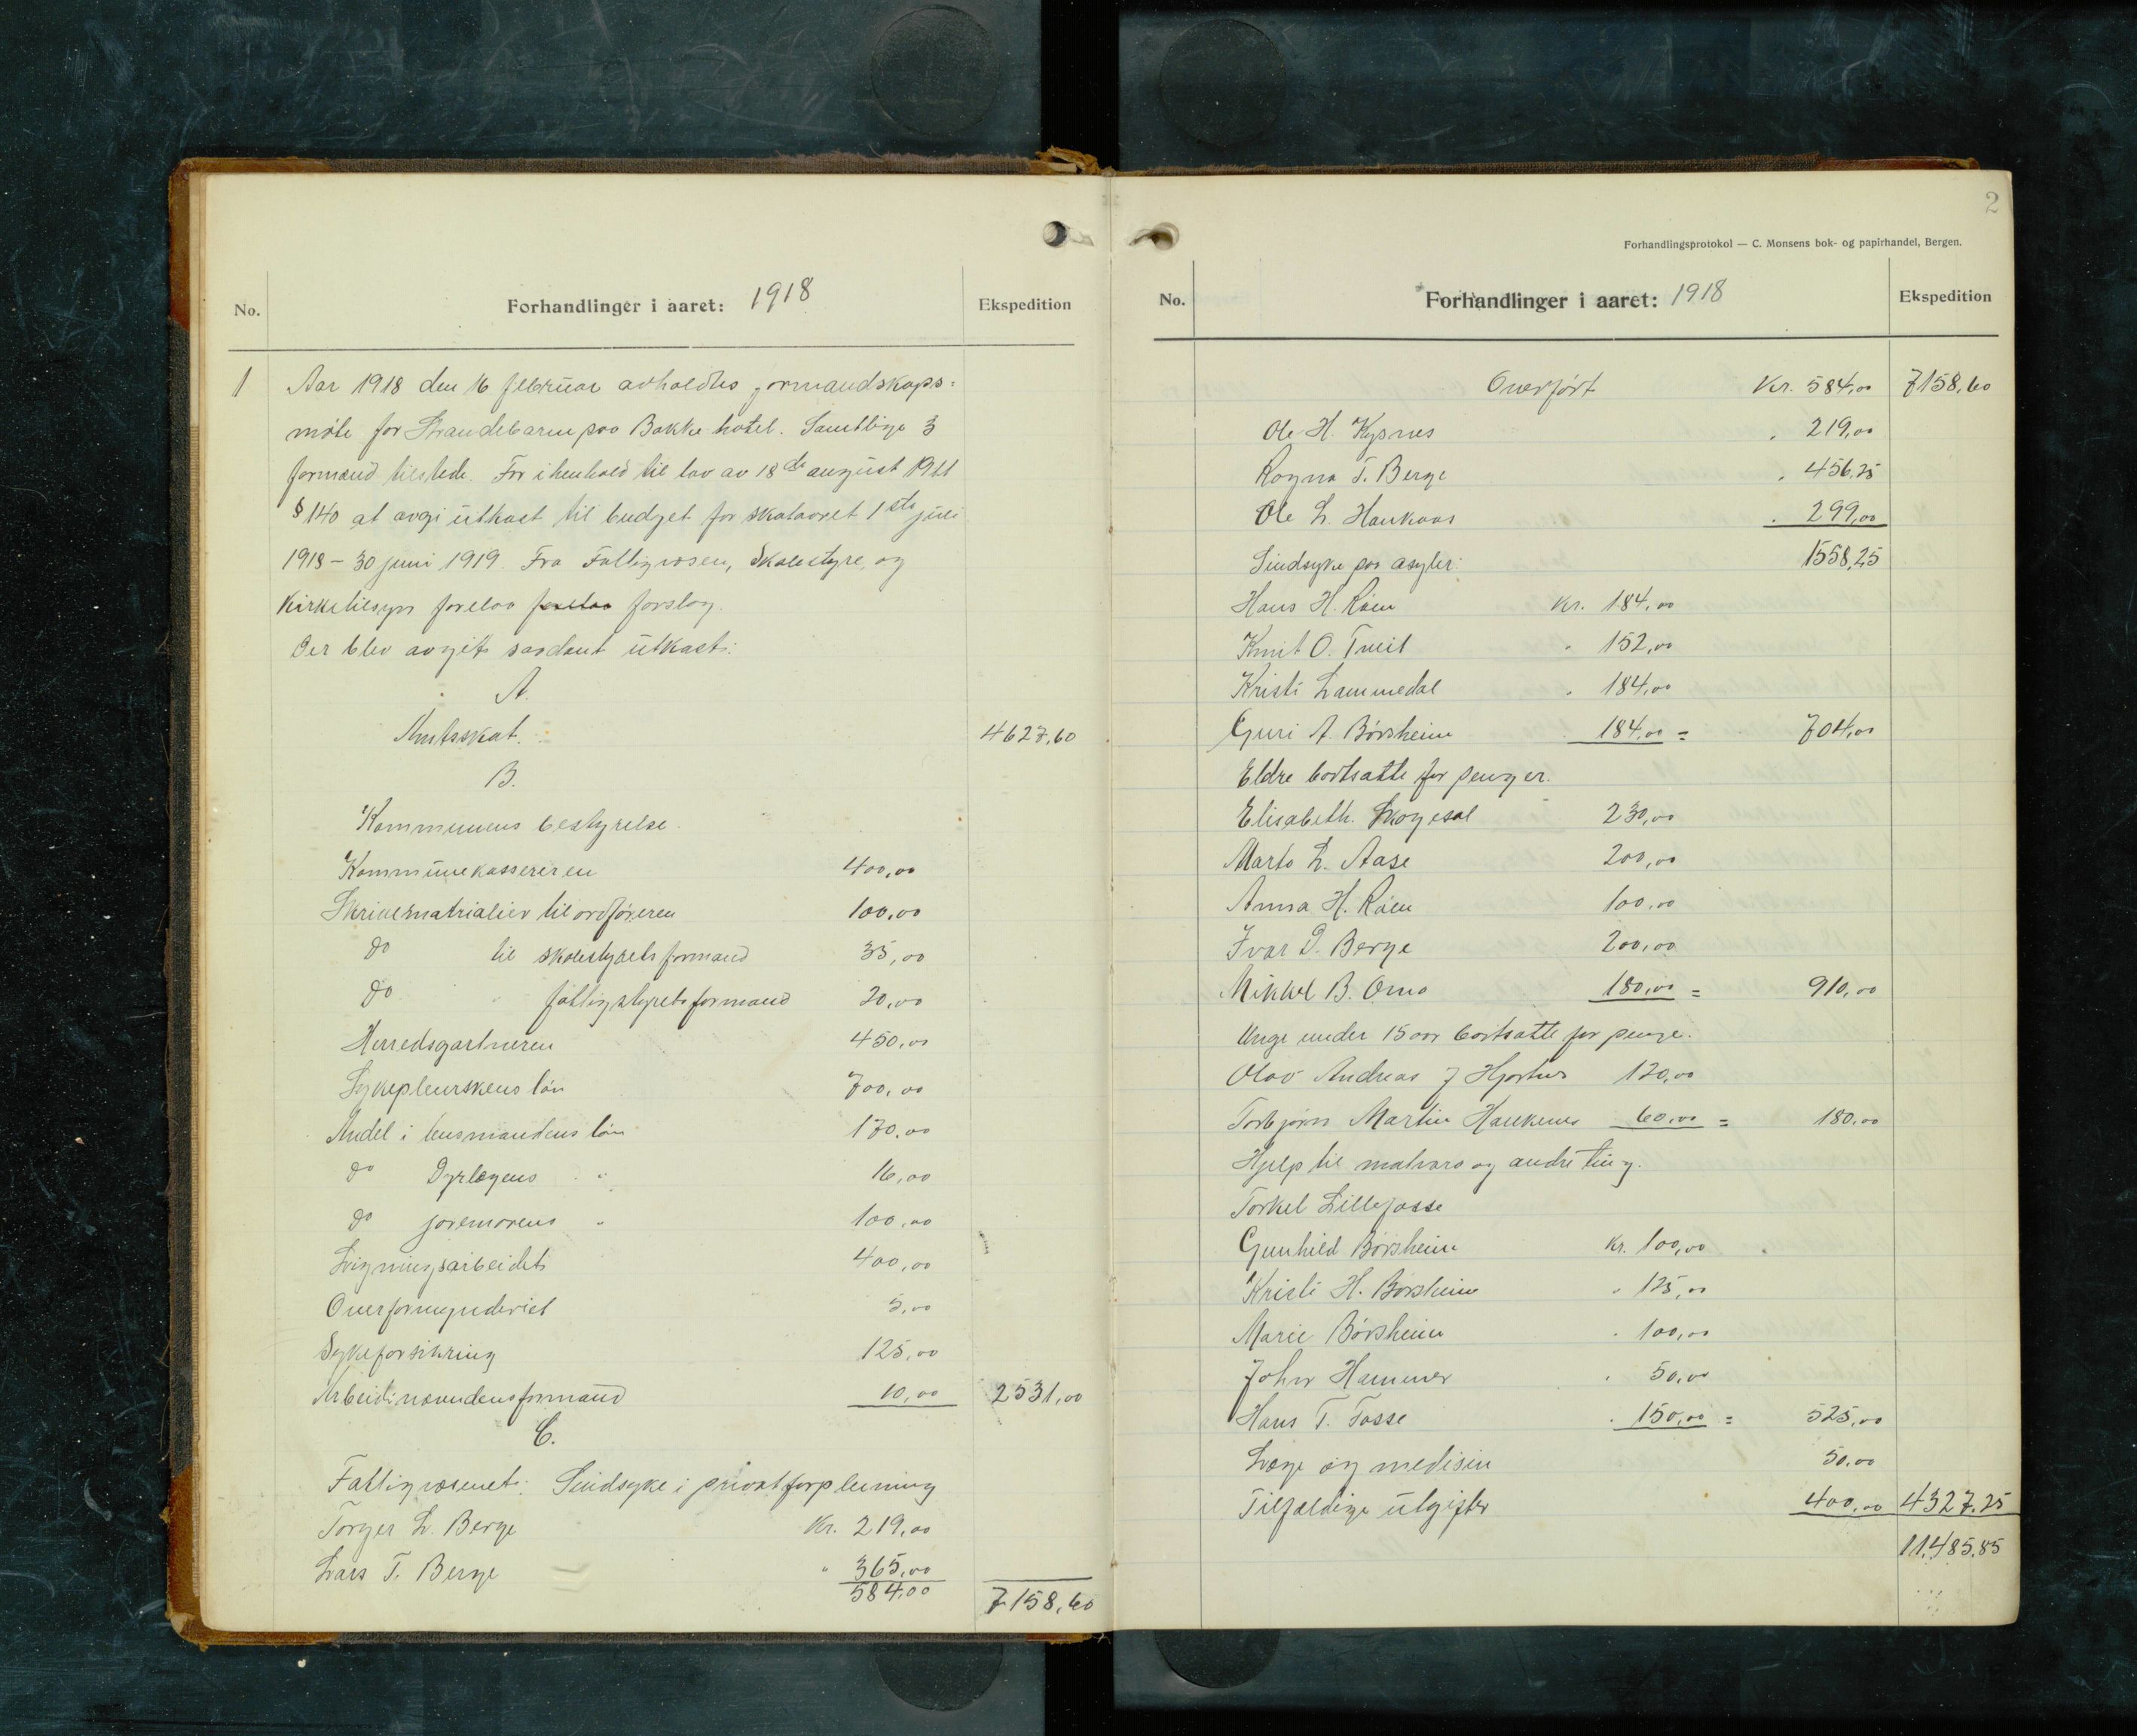 No.
Forhandlinger i aaret: 1918
Ekspedition
1 Aar 1918 den 16 februar avholdtes formandskaps=
møte for Strandebarm paa Bakke hotel. Samtlige 3
formænd tilstede. For i henhold til lov av 18de august 1911
§ 140 at avgi utkast til budget for skataaret 1ste juli
1918 - 30 juni 1919. Fra Fattigvæsen, Skolestyre, og
Kirketilsyn forelaa forelaa forslag.
Der blev avgit saadant utkast:
A.
Amtsskat. 4627,60
B.
Kommunens bestyrelse.
Kommunekassereren 400,00
Skrivematrialier til ordføreren 100,00
do til skolestyrets formand 35,00
do " fattigstyrets formand 20,00
Herredsgartneren 450,00
Sykepleierskens løn 700,00
Andel i lensmandens løn 170,00
do Dyrlægens " 16,00
do joremorens " 100,00
Ligningsarbeidet 400,00
Overformynderiet 5,00
Sykeforsikring 125,00
Arbeidsnævndens formand 10,00 2531,00
C.
Fattigvæsenet: Sindsyke i privatforpleining
Torger L. Berge Kr. 219,00
Lars T. Berge " 365,00
584,00 7158,60
2
Forhandlingsprotokol — C. Monsens bok- og papirhandel, Bergen.
No.
Forhandlinger i aaret: 1918
Ekspedition
Overført Kr. 584,00 7158,60
Ole H. Kysnes " 219,00
Ragna T. Berge " 456,25
Ole L. Haukaas " 299,00
Sindsyke paa asyler: 1558,25
Hans H. Røen Kr. 184,00
Knut O. Tveit " 152,00
Kristi Lammedal " 184,00
Guri A. Børsheim 184,00 = 704,00
Eldre bortsatte for penger.
Elisabeth. Skogesal 230,00
Marta L. Aase 200,00
Anna H. Røen 100,00
Ivar D. Berge 200,00
Mikkel B. Omo 180,00 = 910,00
Unge under 15 aar bortsatte for penge.
Olav Andreas J Hjartnes 120,00
Torbjørn Martin Haukenes 60,00 = 180,00
Hjelp til matvare og andre ting.
Torkel Lillefosse
Gunhild Børsheim Kr. 100,00
Kristi H. Børsheim " 125,00
Marie Børsheim " 100,00
John Hammer " 50,00
Hans T. Fosse " 150,00 = 525,00
Læge og medisin 50,00
Tilfældige utgifter 400,00 4327,25
11,485,85